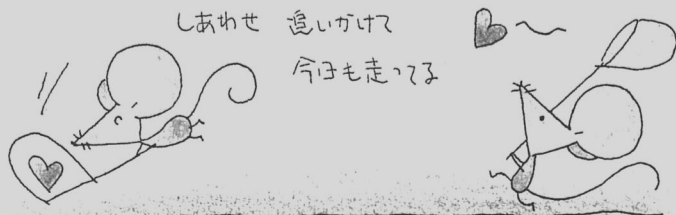 しあわせ 追いかけて
今日も走ってる